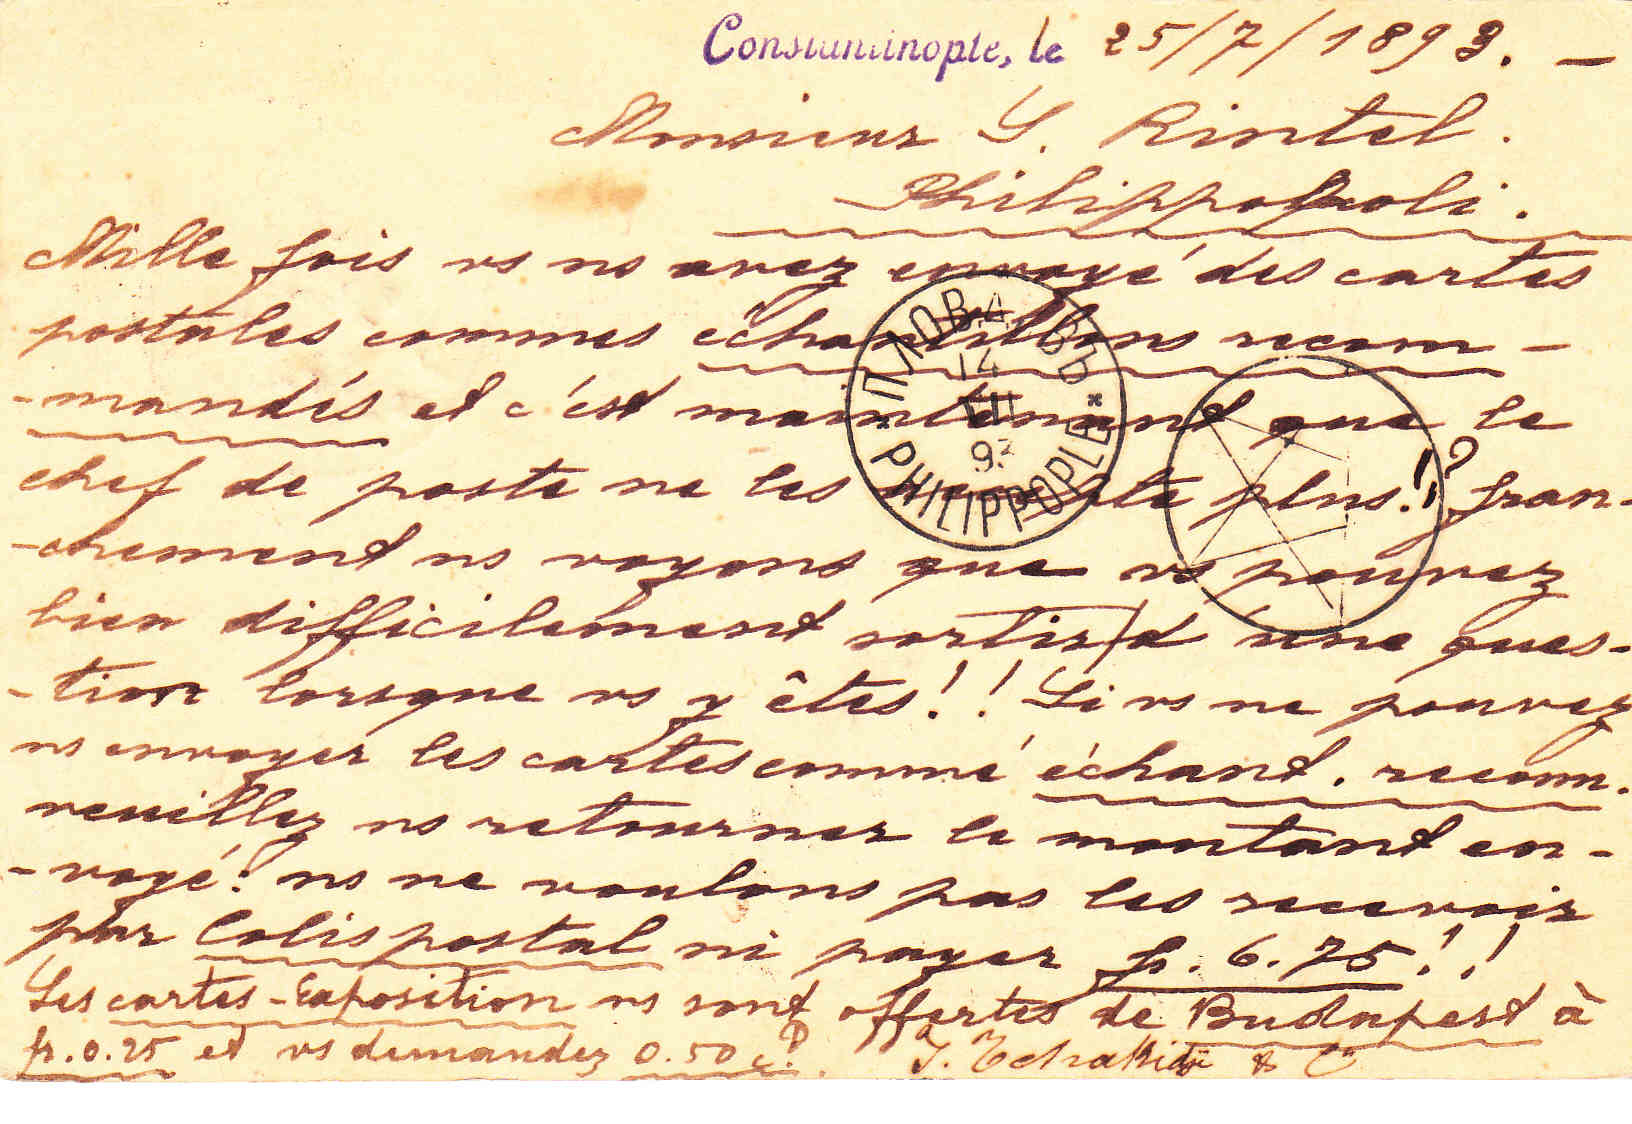 Constantinople, le 25/7/1893. –
Monsieur S. Rintel.
Philippopoli.
Mille fois vs ns avez envoyé des cartes
postales commes échantillons recom-
-mandés et c'est maintenant que le
chef de poste ne les accepte plus!!? fran-
-chement ns voyons que vs pouvez
bien difficilement sortir d'une ques-
-tion lorsque vs y êtes!! Si vs ne pouvez
ns envoyer les cartes comme échant. recom.
veuillez ns retourner le montant en-
-voyé: ns ne voulons pas les recevoir
par Colis postal ni payer fr. 6.75!!
Les cartes-Exposition ns sont offertes de Budapest à
fr. 0.25 et vs demandez 0.50 c?.
ПЛОВДИВЪ
14
VII
93
PHILIPPOPLE